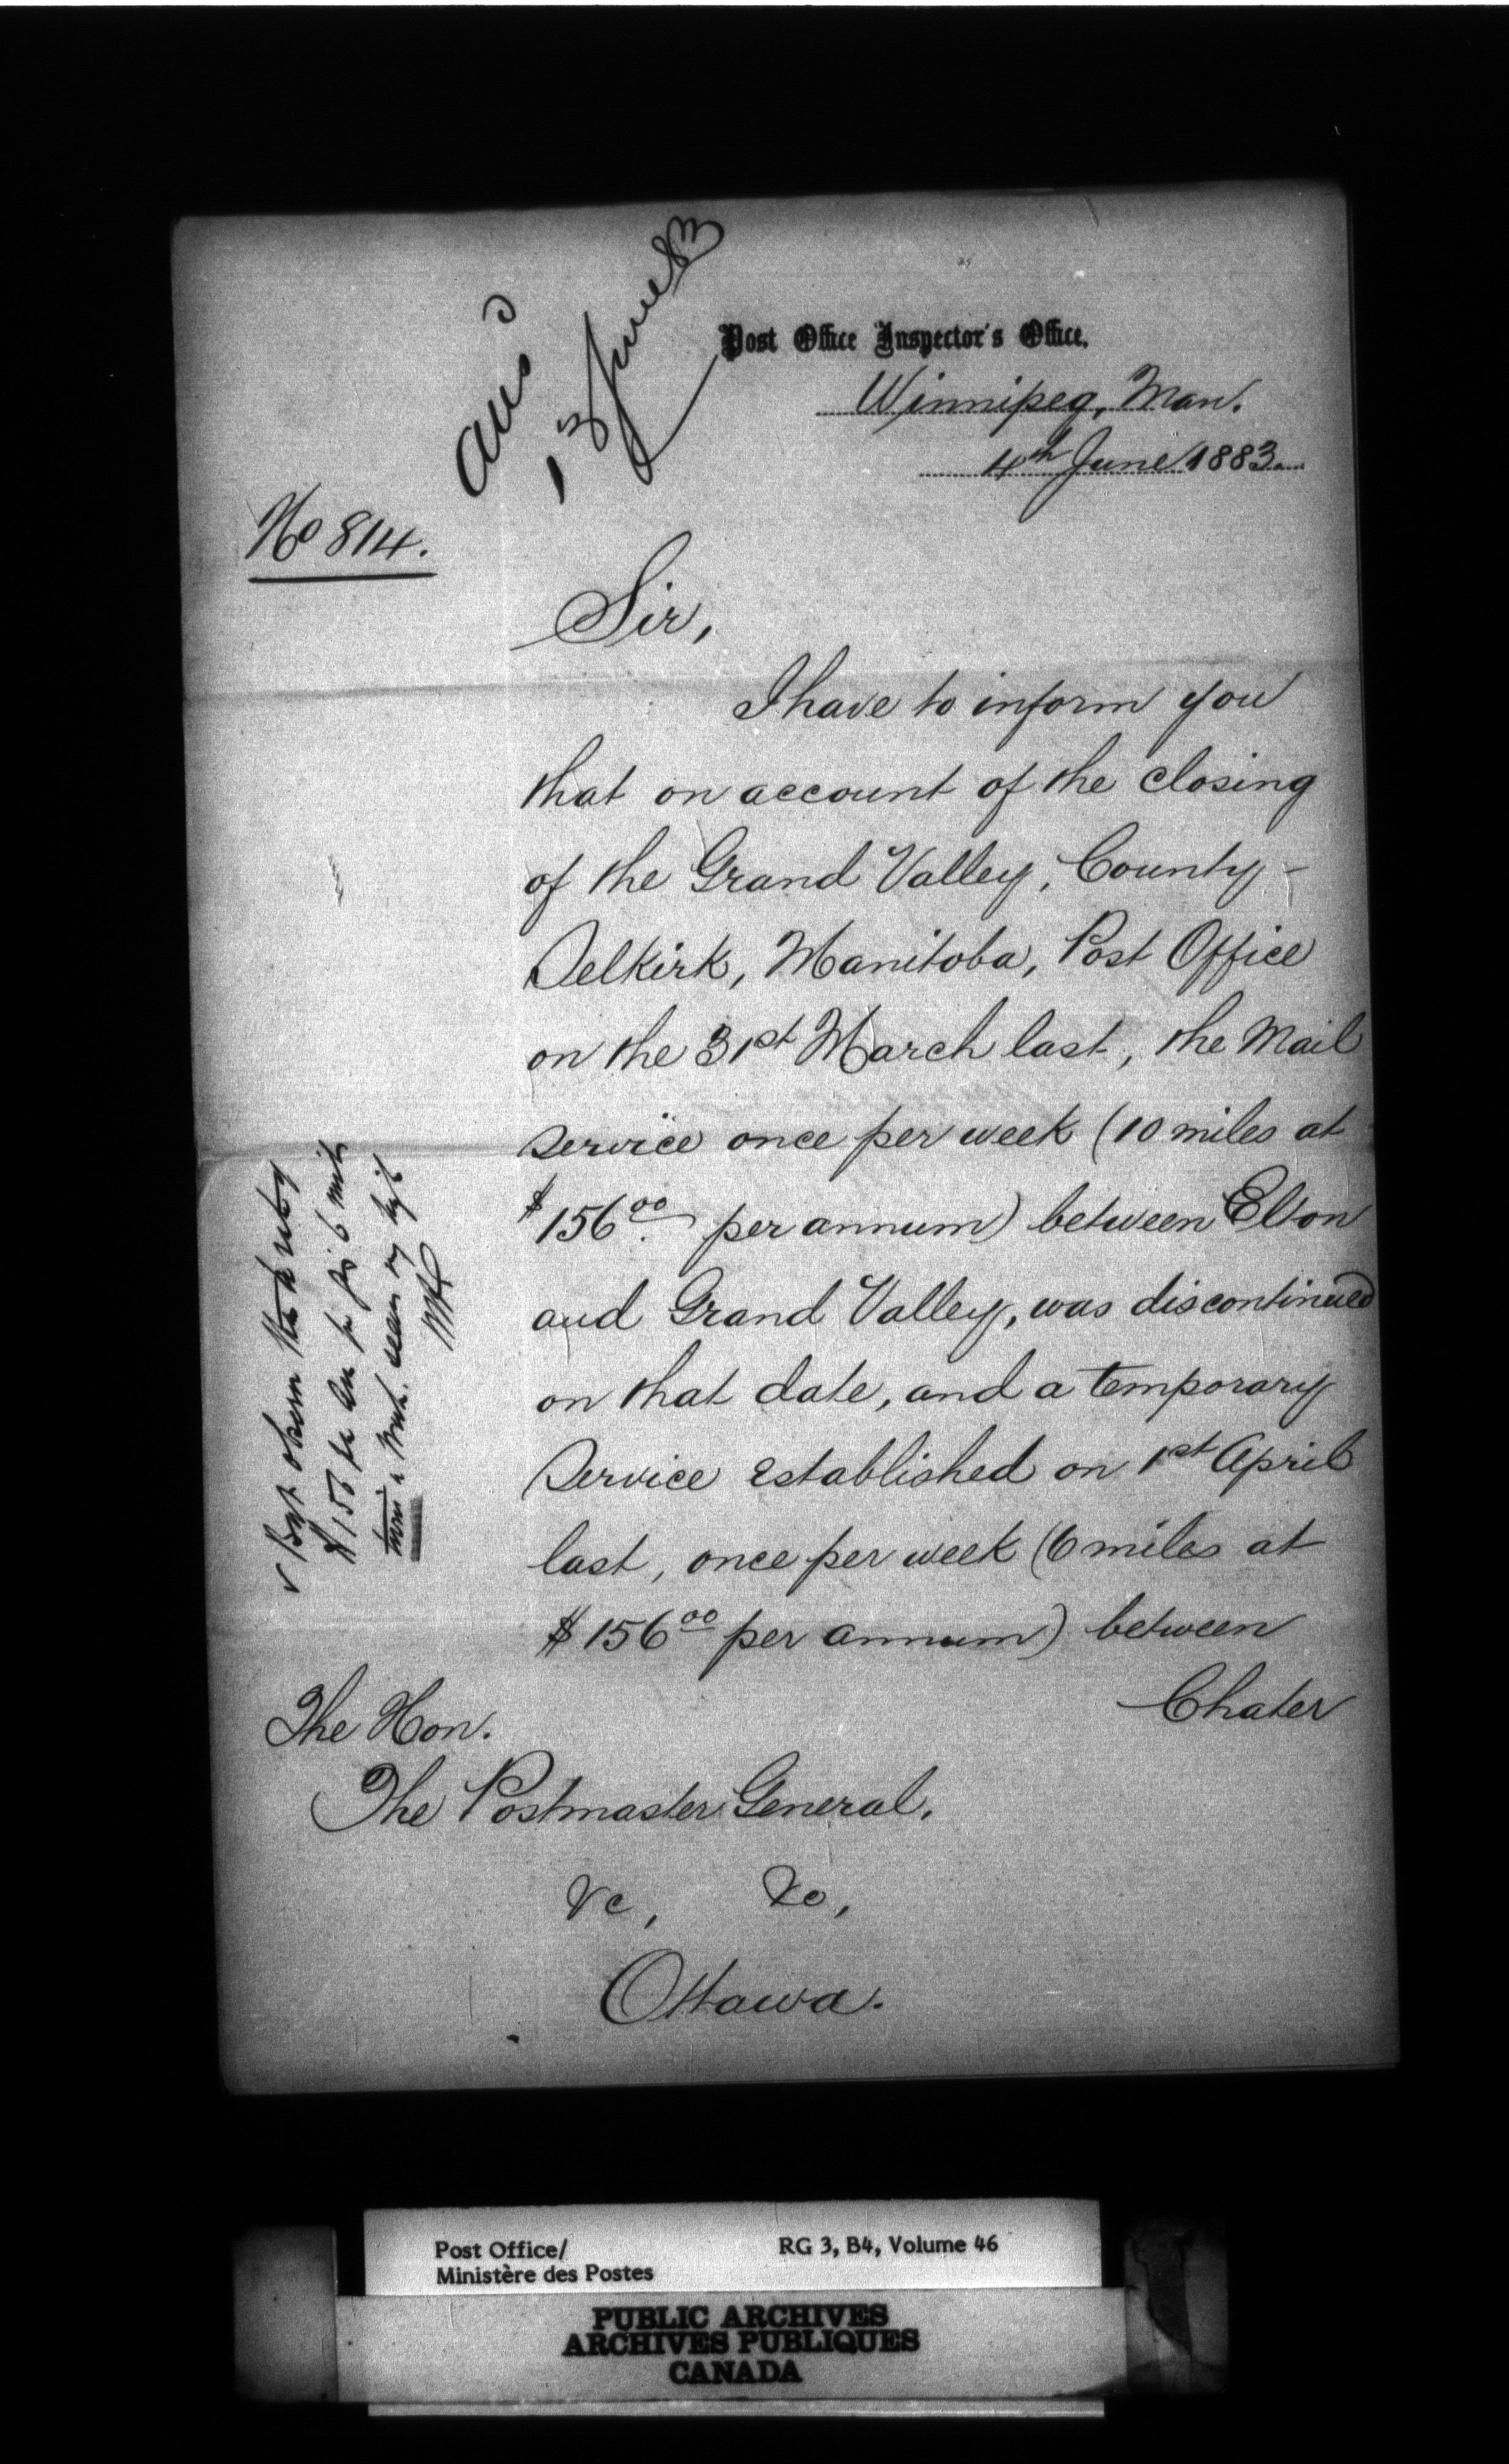 ansd
13 June 83
Post Office Inspector's Office.
Winnipeg, Man.
4th June 1883.
No 814.
Sir,
I have to inform you
that on account of the closing
of the Grand Valley, County-
Selkirk, Manitoba, Post Office
on the 31st March last, the Mail
Service once per week (10 miles at
$156.00 per annum) between Elton
and Grand Valley, was discontinued
on that date, and a temporary
Service established on 1st April
last, once per week (6 miles at
$156.00 per annum) between
Chater
The Hon.
The Postmaster General.
&c, &c,
Ottawa.
$156
Post Office/
Ministère des Postes
RG 3, B4, Volume 46
PUBLIC ARCHIVES
ARCHIVES PUBLIQUES
CANADA